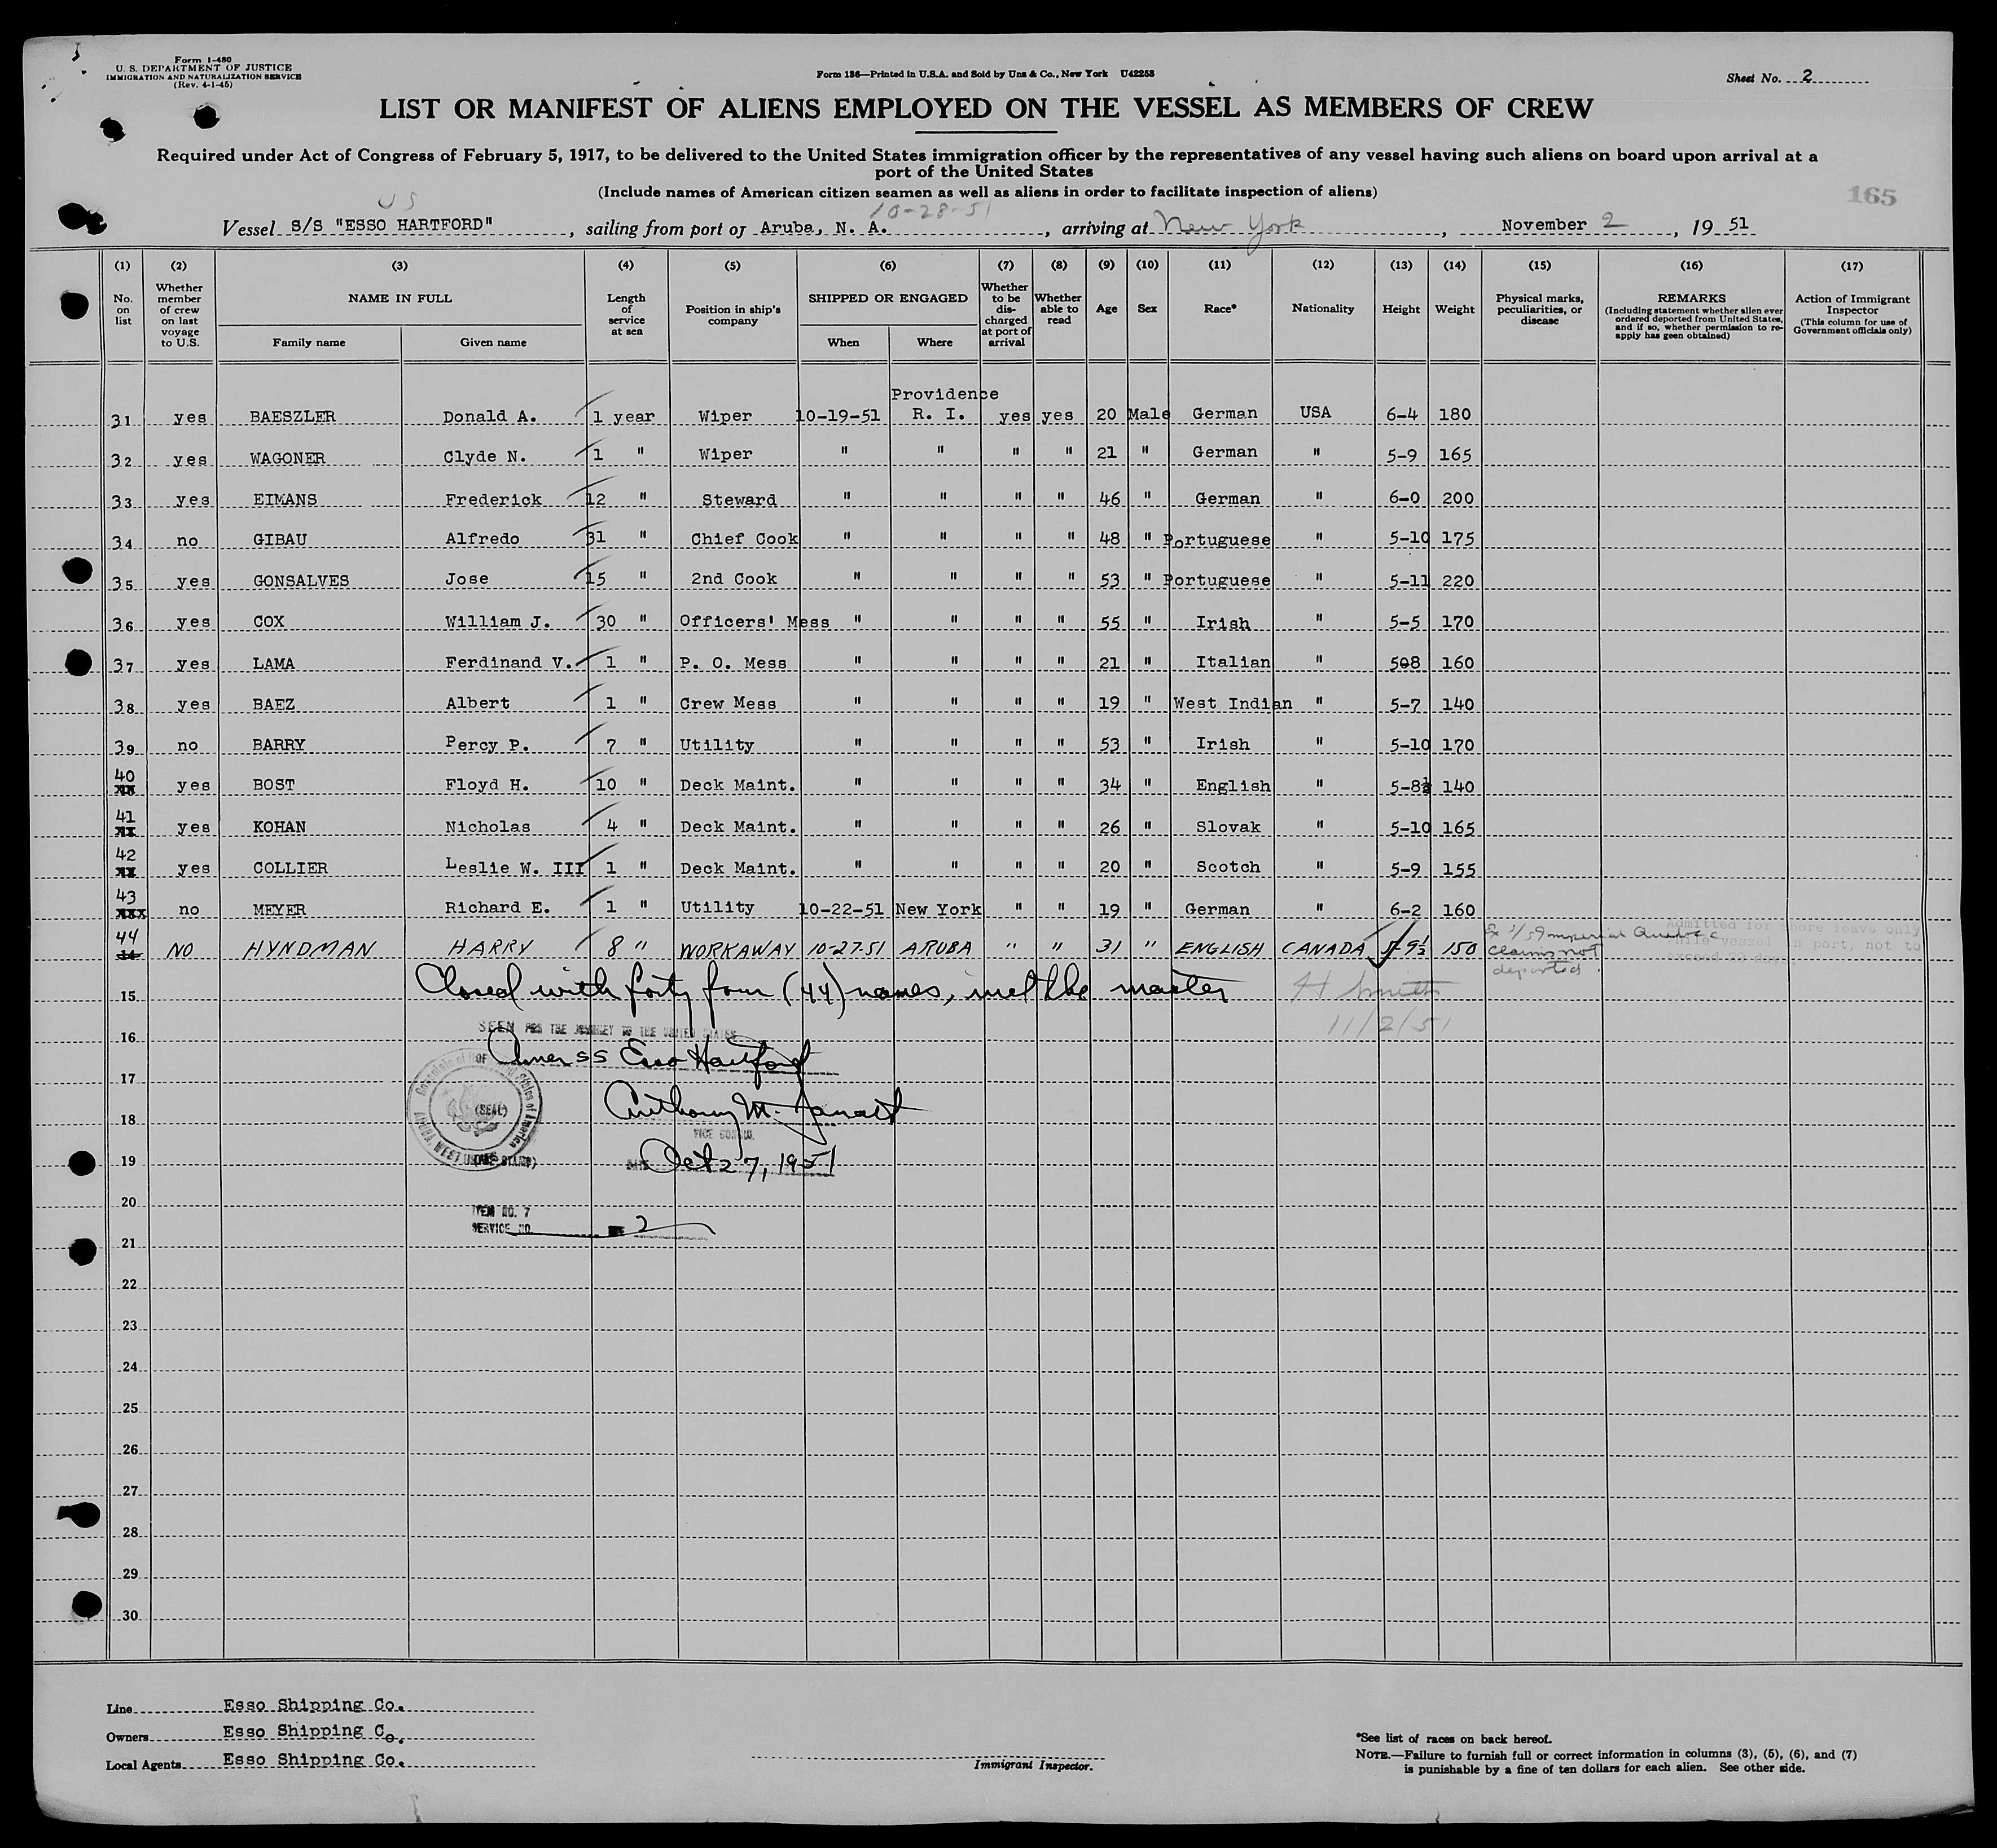 Form I-480
U. S. DEPARTMENT OF JUSTICE
IMMIGRATION AND NATURALIZATION SERVICE
(Rev. 4-1-45)
Form 136—Printed in U.S.A. and Sold by Unz & Co., New York U42258
Sheet No. 2
LIST OR MANIFEST OF ALIENS EMPLOYED ON THE VESSEL AS MEMBERS OF CREW
Required under Act of Congress of February 5, 1917, to be delivered to the United States immigration officer by the representatives of any vessel having such aliens on board upon arrival at a
port of the United States
(Include names of American citizen seamen as well as aliens in order to facilitate inspection of aliens)
165
US
10-28-51
Vessel S/S "ESSO HARTFORD", sailing from port of Aruba, N. A., arriving at New York, November 2, 19 51
(1) (2) (3) (4) (5) (6) (7) (8) (9) (10) (11) (12) (13) (14) (15) (16) (17)
No. on list
Whether member of crew on last voyage to U.S.
NAME IN FULL
Family name
Given name
Length of service at sea
Position in ship's company
SHIPPED OR ENGAGED
When
Where
Whether to be discharged at port of arrival
Whether able to read
Age
Sex
Race*
Nationality
Height
Weight
Physical marks, peculiarities, or disease
REMARKS
(Including statement whether alien ever ordered deported from United States, and if so, whether permission to re-apply has geen obtained)
Action of Immigrant Inspector
(This column for use of Government officials only)
Providence
31 yes BAESZLER Donald A. 1 year Wiper 10-19-51 R. I. yes yes 20 Male German USA 6-4 180
32 yes WAGONER Clyde N. 1 " Wiper " " " " 21 " German " 5-9 165
33 yes EIMANS Frederick 12 " Steward " " " " 46 " German " 6-0 200
34 no GIBAU Alfredo 31 " Chief Cook " " " " 48 " Portuguese " 5-10 175
35 yes GONSALVES Jose 15 " 2nd Cook " " " " 53 " Portuguese " 5-11 220
36 yes COX William J. 30 " Officers' Mess " " " " 55 " Irish " 5-5 170
37 yes LAMA Ferdinand V. 1 " P. O. Mess " " " " 21 " Italian " 508 160
38 yes BAEZ Albert 1 " Crew Mess " " " " 19 " West Indian " 5-7 140
39 no BARRY Percy P. 7 " Utility " " " " 53 " Irish " 5-10 170
40 yes BOST Floyd H. 10 " Deck Maint. " " " " 34 " English " 5-8½ 140
41 yes KOHAN Nicholas 4 " Deck Maint. " " " " 26 " Slovak " 5-10 165
42 yes COLLIER Leslie W. III 1 " Deck Maint. " " " " 20 " Scotch " 5-9 155
43 no MEYER Richard E. 1 " Utility 10-22-51 New York " " 19 " German " 6-2 160
44 NO HYNDMAN HARRY 8 " WORKAWAY 10-27-51 ARUBA " " 31 " ENGLISH CANADA 5-9½ 150
Imperial Quebec
claims not
deported.
Admitted for shore leave only
while vessel in port, not to
exceed 29 days.
Closed with forty four (44) names, incl the master
H Smith
11/2/51
15
SEEN FOR THE JOURNEY TO THE UNITED STATES
16
OF Amer SS Esso Hartford
17
(SEAL)
18
VICE CONSUL
19
DATE Oct 27, 1951
20
ITEM NO. 7
SERVICE NO. 2
21
22
23
24
25
26
27
28
29
30
Line Esso Shipping Co.
Owners Esso Shipping Co.
Local Agents Esso Shipping Co.
Immigrant Inspector.
*See list of races on back hereof.
NOTE.—Failure to furnish full or correct information in columns (3), (5), (6), and (7)
is punishable by a fine of ten dollars for each alien. See other side.